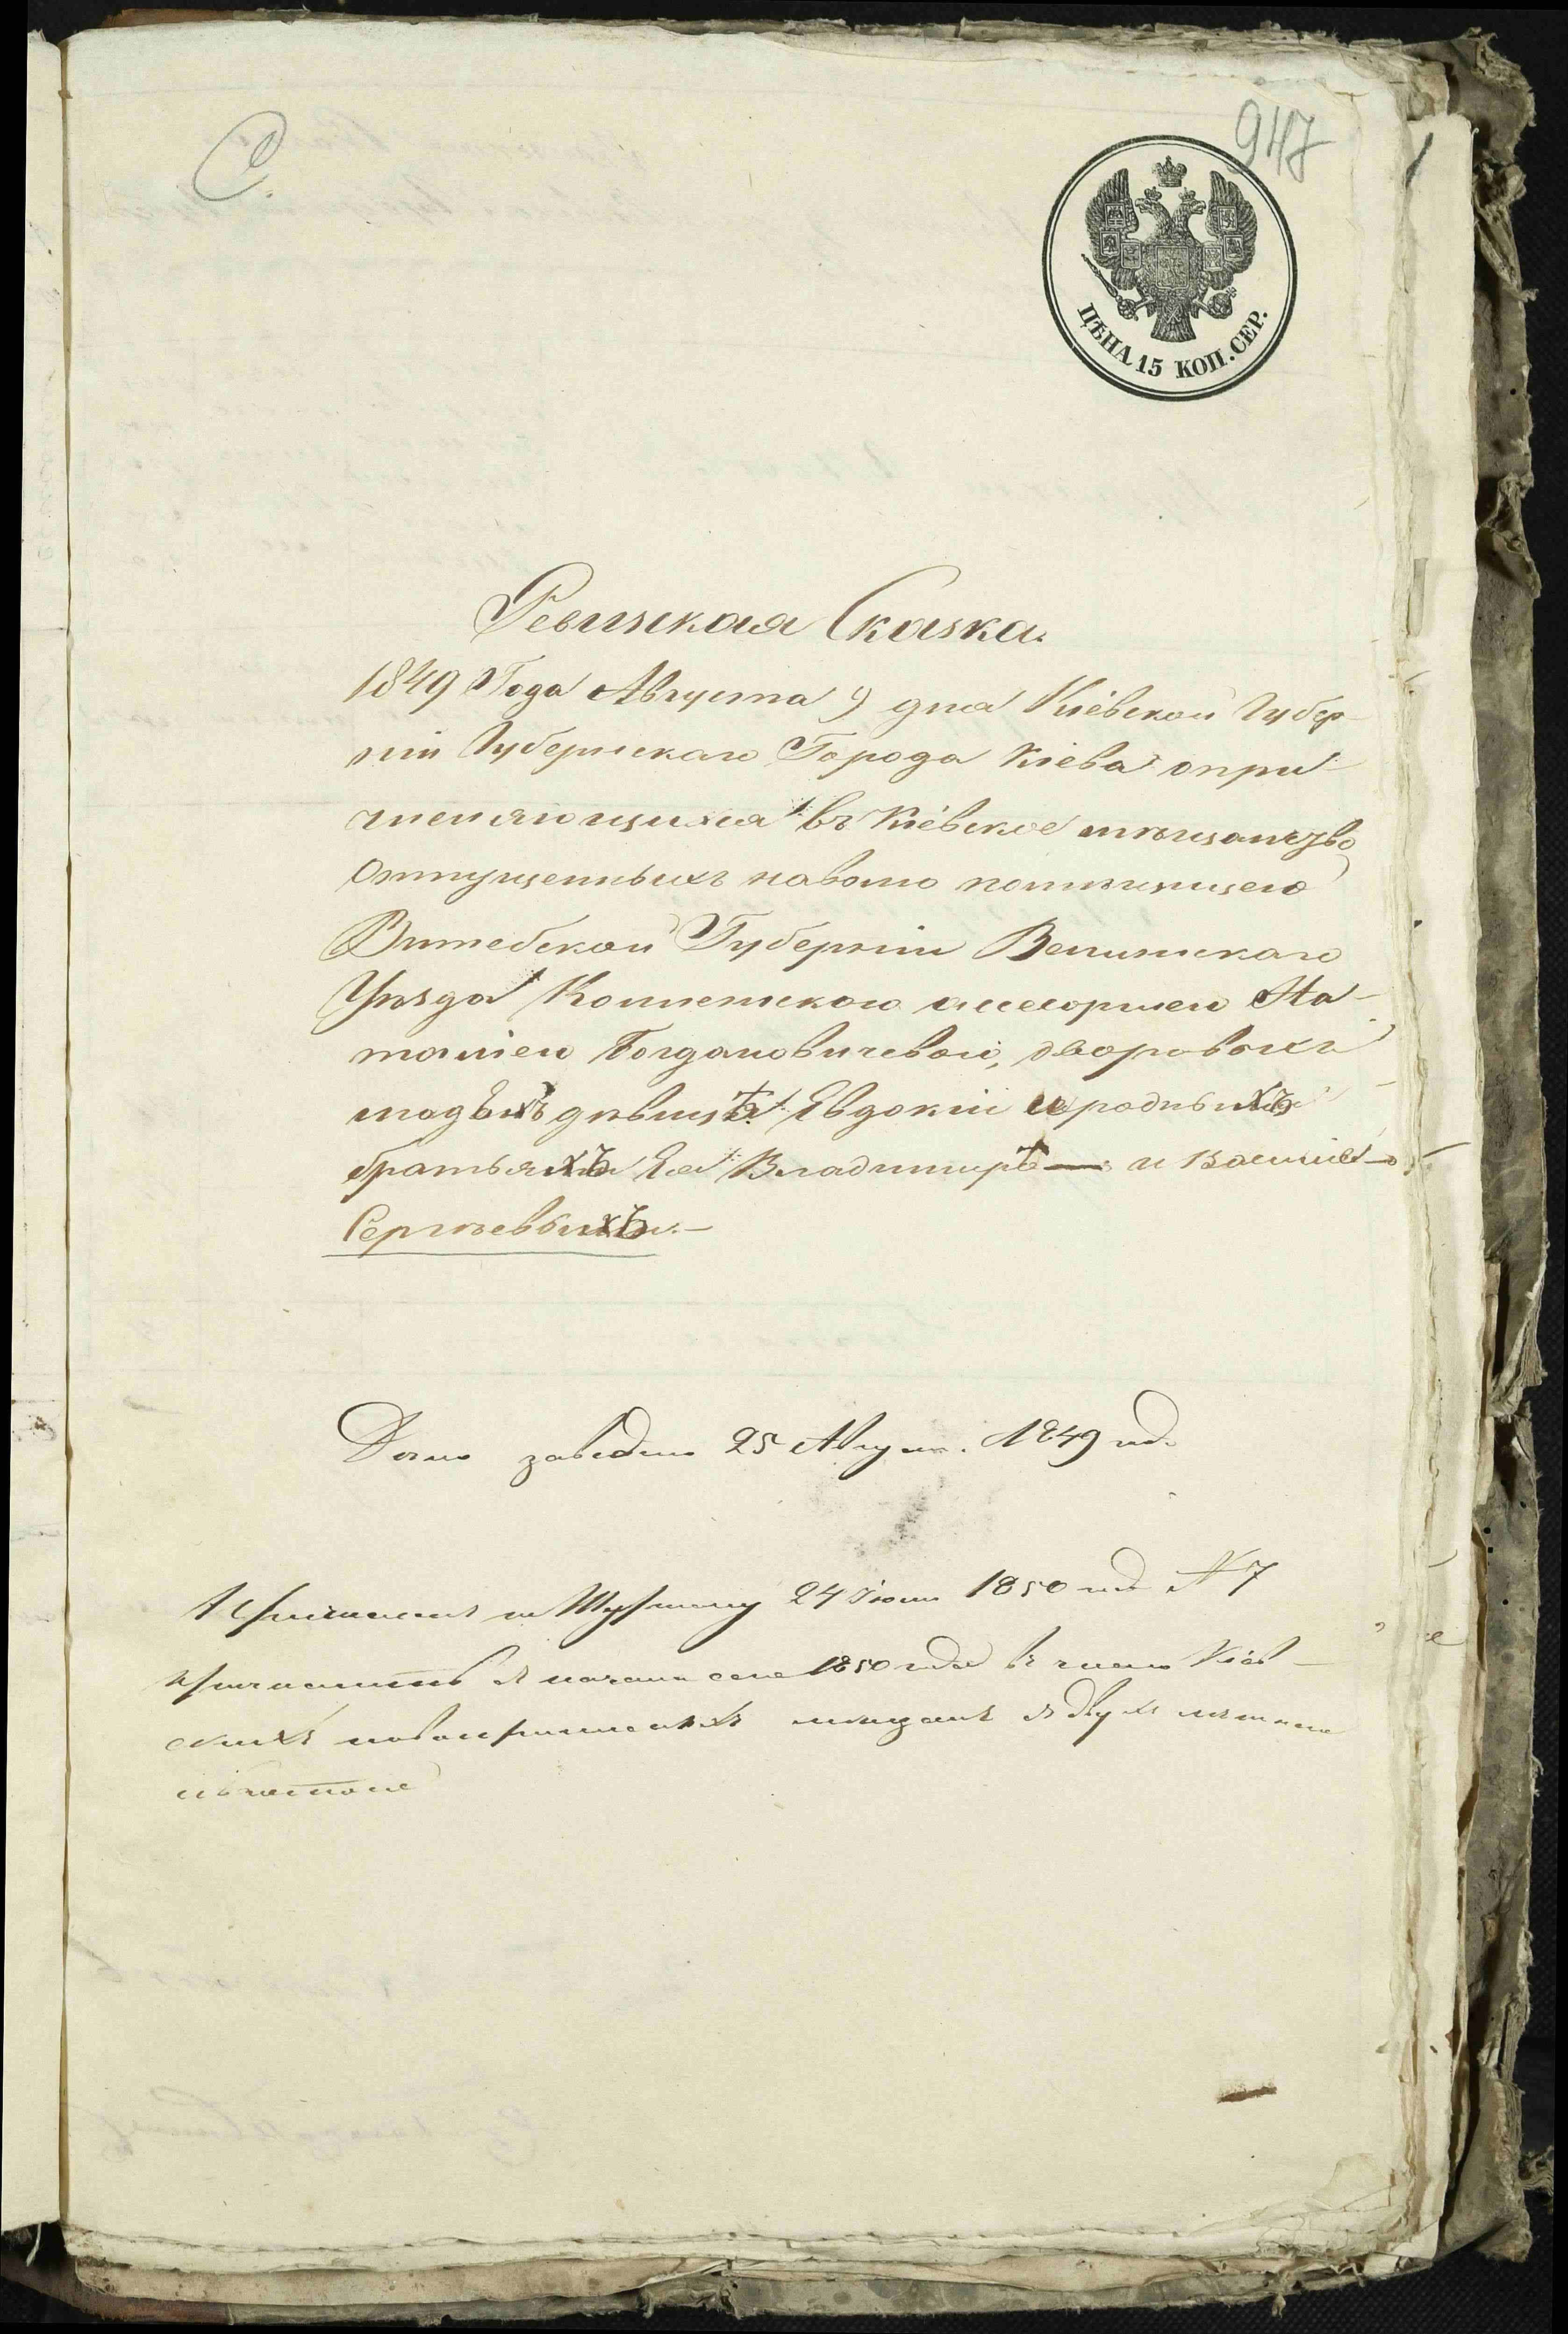 С.
947
ЦѢНА 15 КОП. СЕР.
Ревизская Сказка.
1849 Года Августа 9 дня Кіевской Губер-
ніи Губернскаго Города Кіева о при-
числяющихся въ Кіевское мѣщанство
Отпущенныхъ на волю помѣщицею
Витебской Губерніи Велижскаго
Уѣзда Коллежскою ассесоршею На-
таліею Богдановичевой, дворовыхъ
людяхъ дѣвицѣ Евдокіи и родныхъ
братьяхъ Ея Владимирѣ — и Василіѣ
Сергѣевыхъ. —
Дѣло заведено 25 Августа 1849 год.
Причислены по Журналу 24 Іюня 1850 года № 7
причислить съ начала сего 1850 года въ число Кіев-
скихъ мѣщанъ съ двухъ лѣтнею
льготою